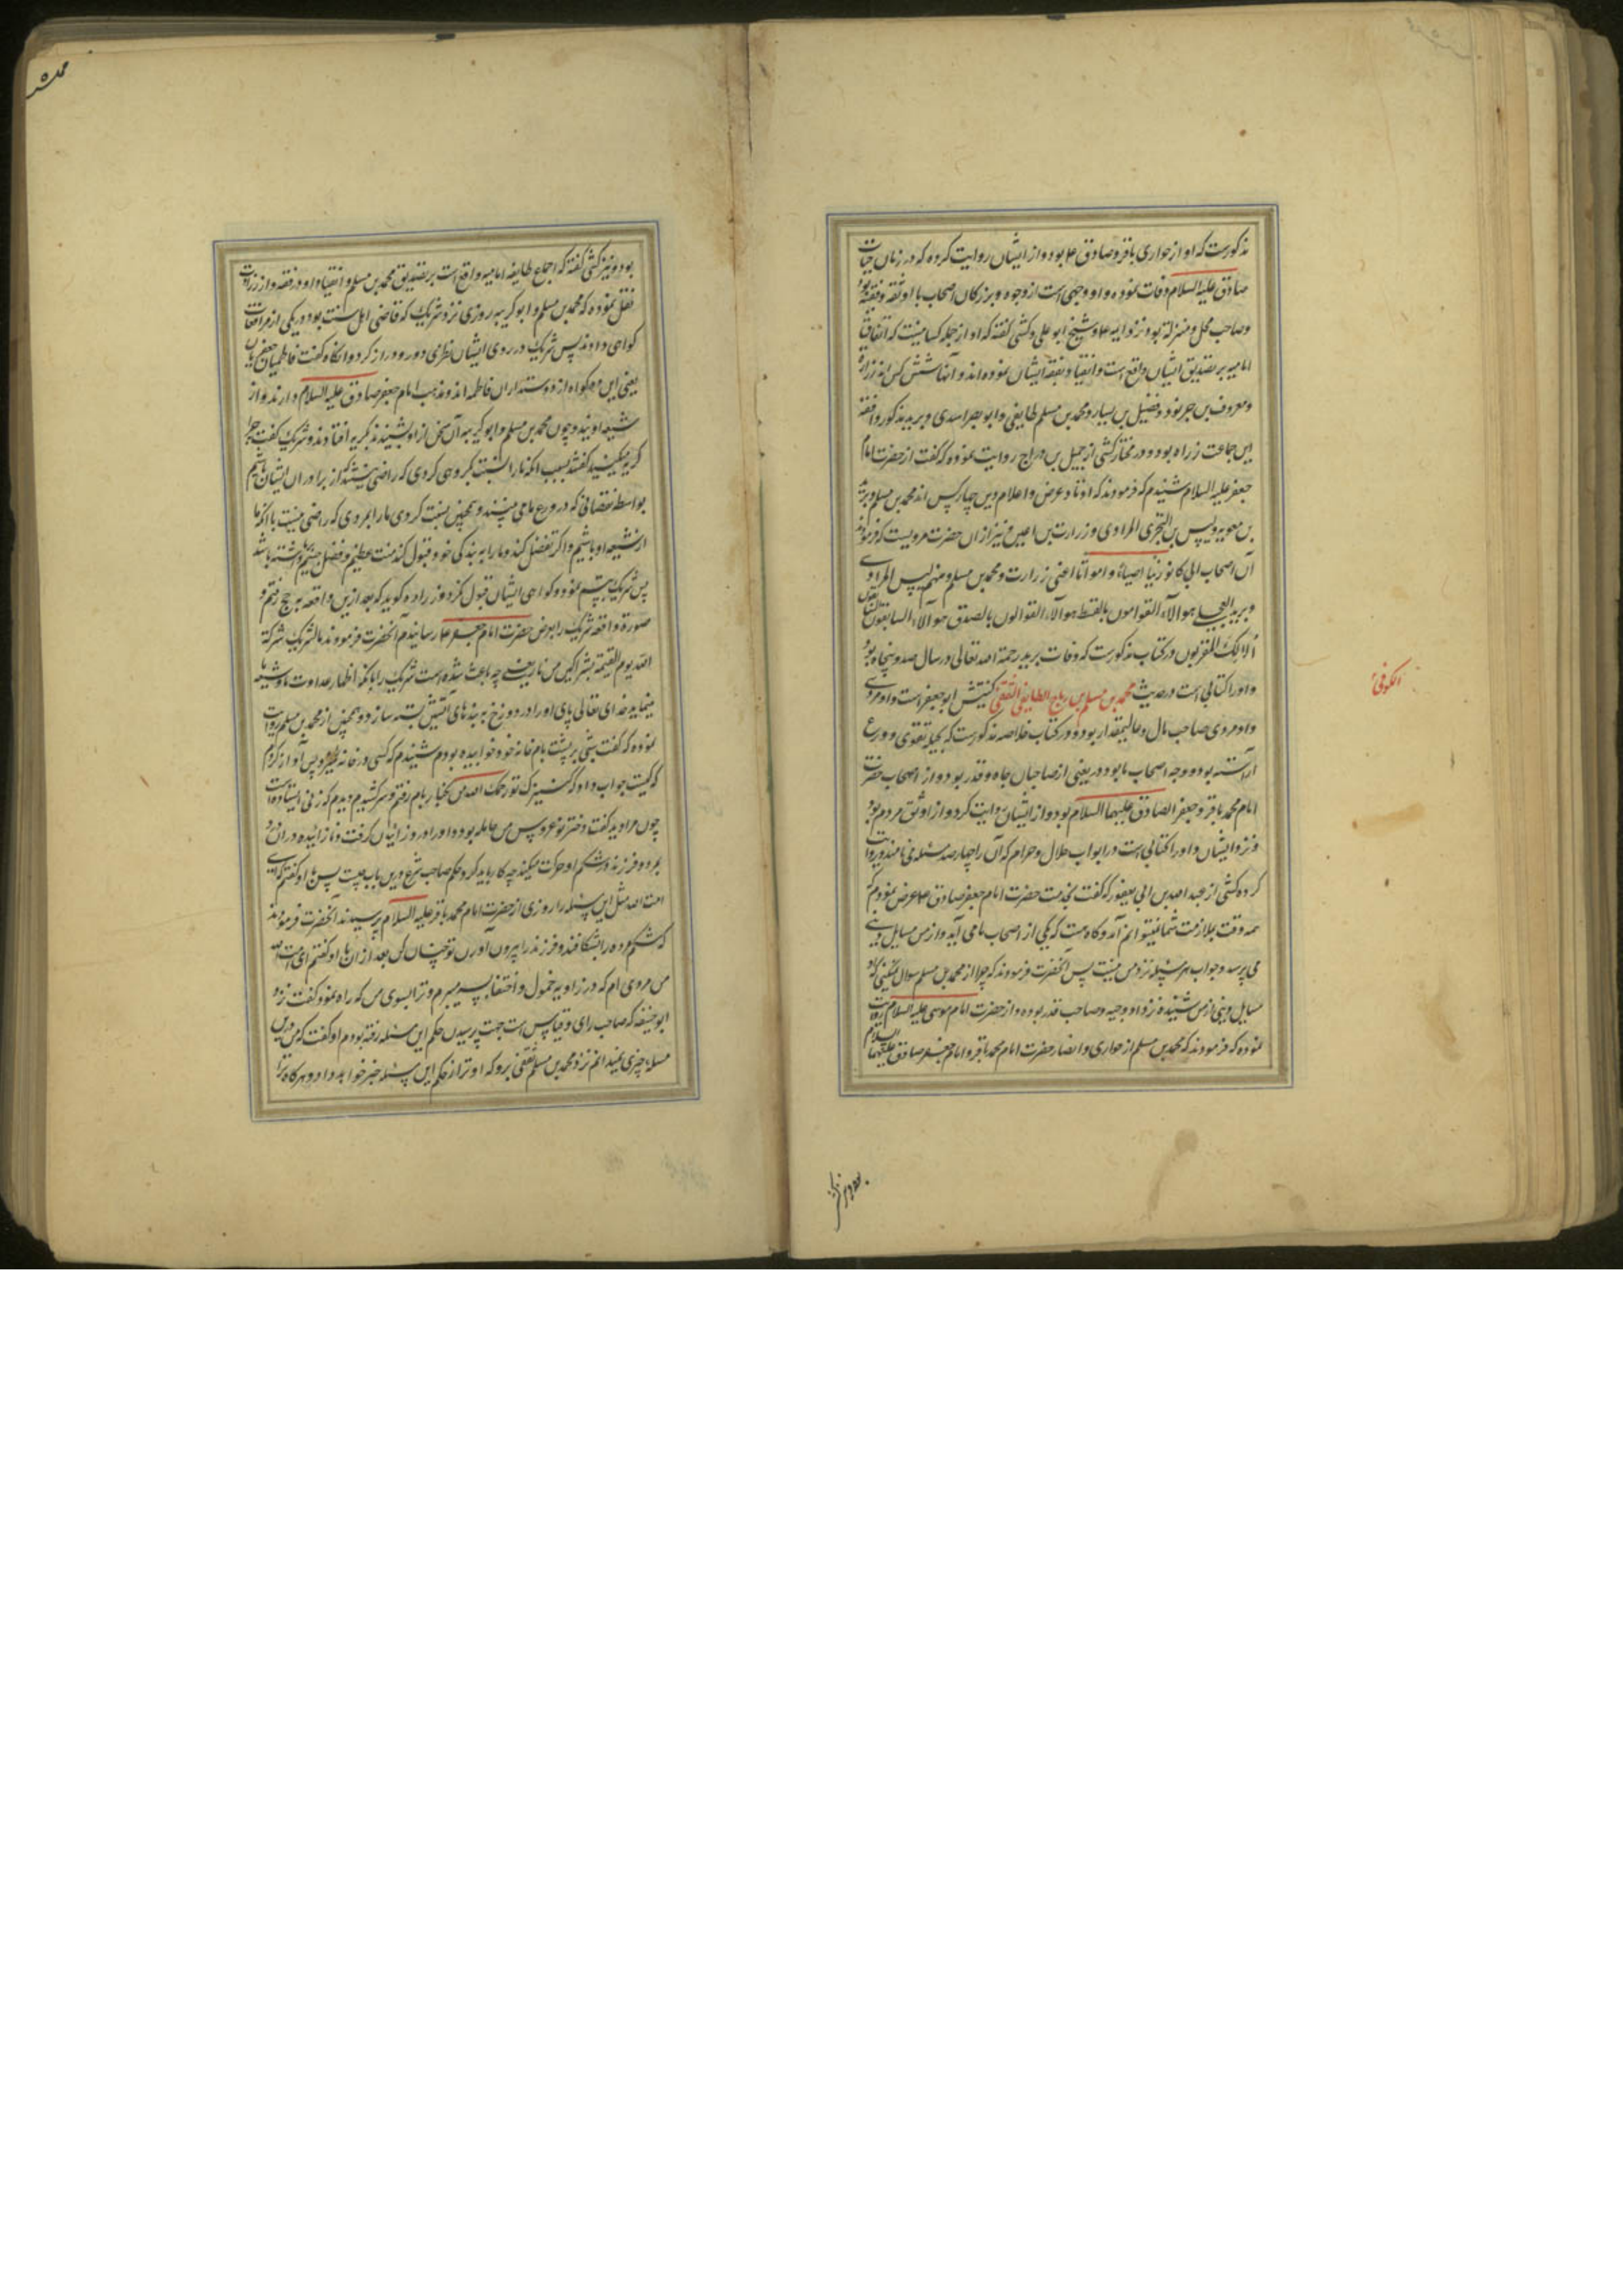 مذکورست که او از حواری باقر و صادق ع بود و از ایشان روایت کرده که در زمان حیات
صادق علیه السلام وفات نموده و او وجهی است از وجوه و بزرکان اصحاب ما و ثقه و فقیه بود
و صاحب محل و منزلة بود نزد ایمه ع و شیخ ابو علی و کشی کفته که او از جمله کسانیست که اتفاق
امامیه بر تصدیق ایشان واقع است و انقیاد بفقه ایشان نموده اند و آنها شش کس اند زراره
و معروف بن خربوذ و فضیل بن یسار و محمد بن مسلم طایفی و ابو بصر اسدی و برید مذکور و افقه
این جماعت زراره بود و در مختار کشی از جمیل بن دراج روایت نموده که کفت از حضرت امام
جعفر علیه السلام شنیدم که فرمودند که اوتاد عرض و اعلام دین چهار کس اند محمد بن مسلم و برید
بن معویه و لیس بن البختری المرادی و زرارت بن اعین و نیز از ان حضرت مرویست که فرمودند
ان اصحاب ابی کانو زینا احیاء و امواتا اعنی زرارت و محمد بن مسلم و منهم لیس المرادی
و برید العجلی هوالآء القوامون بالقسط هوالآء القوالون بالصدق هوالآء السابقون السابقون
الائک المقربون و در کتاب مذکورست که وفات برید رحمة الله تعالی در سال صد و پنجاه بود
و او را کتابی است در حدیث محمد بن مسلم بن رباح الطایفی الثقفی کنیتش ابو جعفر است و او مردی
الکوفی
و او مردی صاحب مال و عالیمقدار بود و در کتاب خلاصه مذکورست که بحلیه تقوی و ورع
آراسته بود و وجه اصحاب ما بود و در یعنی از صاحبان جاه و قدر بود و از اصحاب حضرت
امام محمد باقر و جعفر الصادق علیهما السلام بود و از ایشان روایت کرد و از اوثق مردم بود
نزد ایشان و او را کتابی است در ابواب حلال و حرام که آن را چهار صد مسئله می نامند و روایت
کرده کشی از عبد الله بن ابی یعفور که کفت بخدمت حضرت امام جعفر صادق ع عرض نمودم که
همه وقت بملازمت شما نمیتوانم آمد و کاه هست که یکی از اصحاب ما می آید و از من مسایل دینی
می پرسد و جواب هر مسئله نزد من نیست پس آنحضرت فرمودند که چرا از محمد بن مسلم سوال نمیکنی که او
مسایل دینی از من شنیده و نزد او وجیه و صاحب قدر بوده و از حضرت امام موسی علیه السلام روایت
نموده که فرمودند که محمد بن مسلم از حواری و انصار حضرت امام محمد باقر و امام جعفر صادق علیهما السلام
بود و نیز
بود و نیز کشی کفته که اجماع طایفه امامیه واقع است بر تصدیق محمد بن مسلم و انقیاد او در فقه و از زرارت
نقل نموده که محمد بن مسلم و ابو کریبه روزی نزد شریک که قاضی اهل سنت بود در یکی از مرافعات
کواهی دادند پس شریک در روی ایشان نظری دور و دراز کرد و انکاه کفت فاطمیان جعفریان
یعنی این دو کواه از دوستداران فاطمه اند و مذهب امام جعفر صادق علیه السلام دارند و از
شیعه اویند و چون محمد بن مسلم و ابو کریبه آن سخن از او بشنیدند بکریه افتادند و شریک کفت چرا
کریه میکنید کفتند بسبب آنکه ما را نسبت بکروهی کردی که راضی نیستند که از برادران ایشان باشیم
بواسطه نقصانی که در ورع ما می بینند و همچنین نسبت کردی ما را بمردی که راضی نیست با آنکه ما
از شیعه او باشیم و اکر تفضل کند و ما را به بندکی خود قبول کند منت عظیم و فضل جسیم بر ما داشته باشد
پس شریک تبسم نمود و کواهی ایشان قبول نکرد و زراره کوید که بعد ازین واقعه به حج رفتم و
صورة واقعه شریک را بعرض حضرت امام جعفر ع رسانیدم آنحضرت فرمودند مالشریک شرکه
الله یوم القیمة بشراکین من نار یعنی چه باعث شده است شریک را بانکه اظهار عداوت ما و شیعه ما
مینماید خدای تعالی پای او را در دوزخ به بندهای آتشین بسته سازد و همچنین از محمد بن مسلم روایت
نموده که کفت شبی بر پشت بام خانه خود خوابیده بودم شنیدم که کسی در خانه میزند پس آواز کردم
که کیست جواب داد که کنیزک تو رحمک الله من بکنار بام رفتم و سر کشیدم دیدم که زنی ایستاده است
چون مرا دید کفت دختر نو عروس من حامله بود و او را درد زائیدن کرفت و نا زائیده در ان درد
بمرد و فرزند در شکم او حرکت میکند چه کار باید کرد و حکم صاحب شرع درین باب چیست پس با او کفتم که ای
امت الله مثل این مسئله را روزی از حضرت امام محمد باقر علیه السلام پرسیدند آنحضرت فرمودند
که شکم مرده را بشکافند و فرزند را بیرون آورند تو چنان کن بعد از ان با او کفتم ای امت الله
من مردی ام که در زاویه خمول و اختفا بسر میبرم و ترا بسوی من که راه نمود کفت نزد
ابو حنیفه که صاحب رای و قیاس است جهت پرسیدن حکم این مسئله رفته بودم او کفت که من درین
مسله چیزی نمیدانم نزد محمد بن مسلم ثقفی برو که او ترا از حکم این مسئله خبر خواهد داد و هرکاه ترا